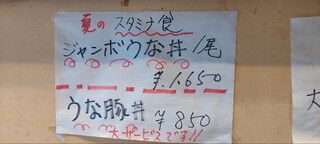 夏のスタミナ食
ジャンボうな丼 1尾
¥.1.650
うな豚丼 ¥850
大サービスです!!
大